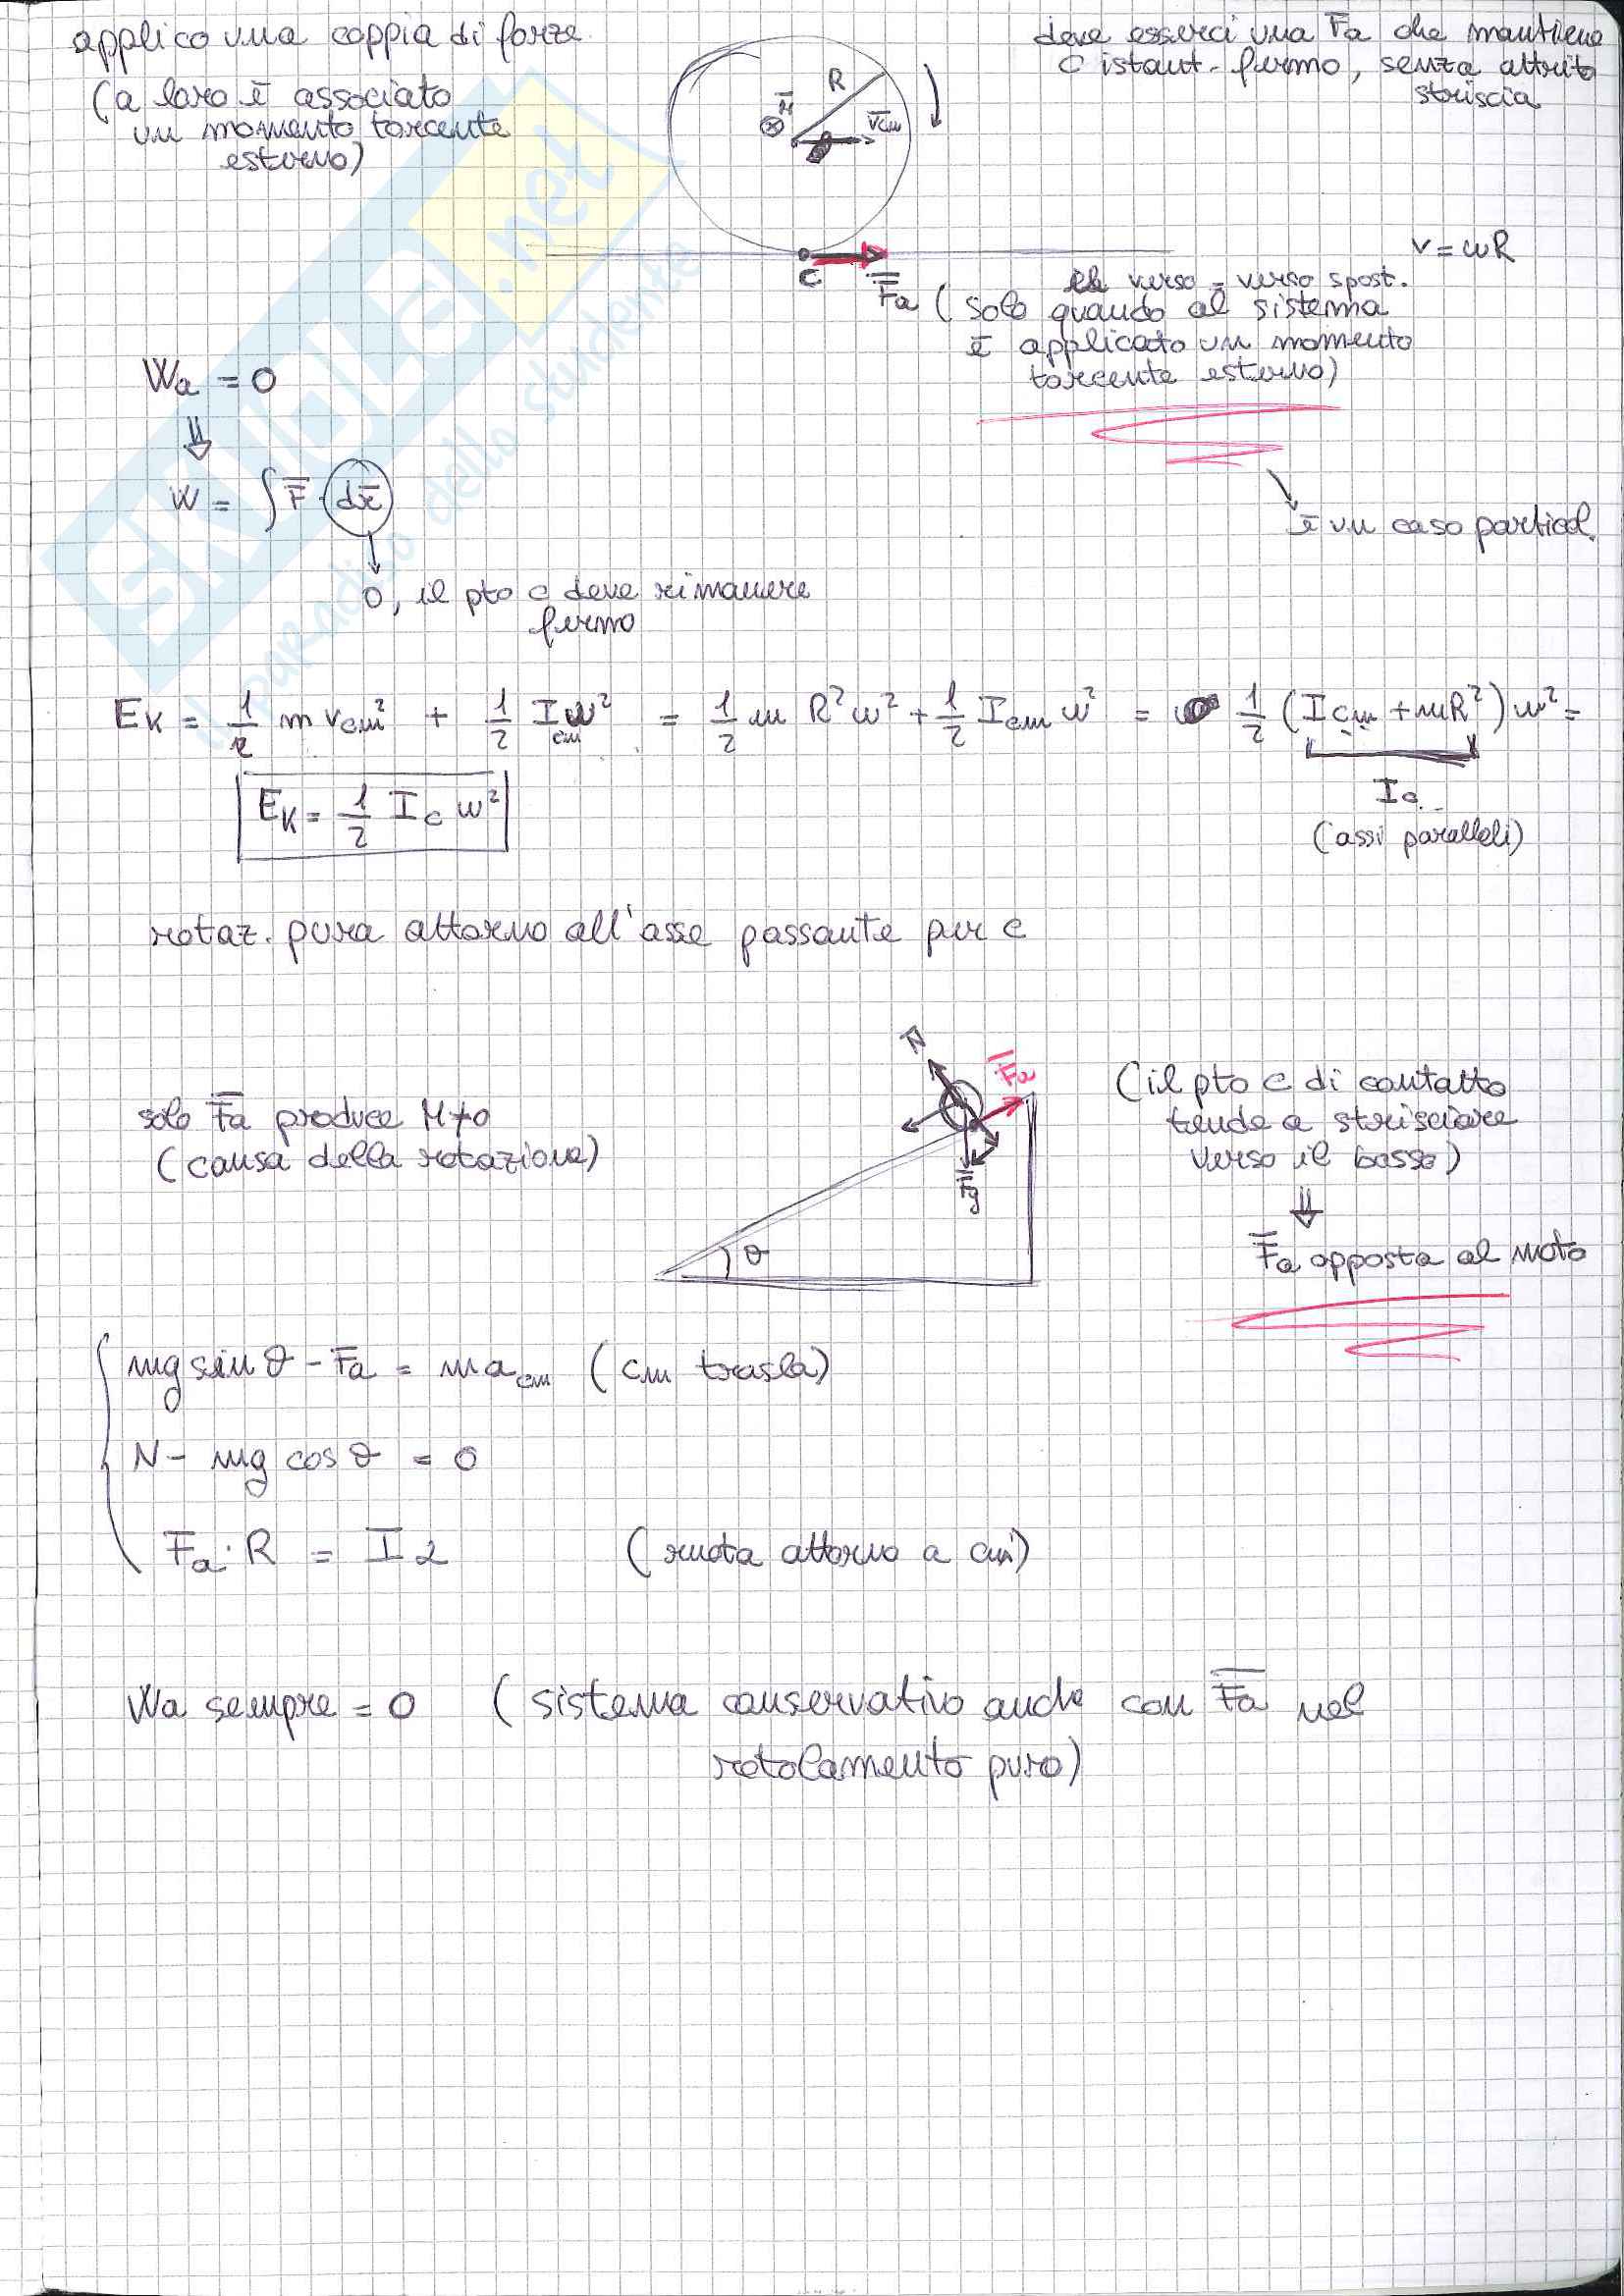 applico una coppia di forze
(a loro è associato
un momento torcente
esterno)
R
M
vcm
deve esserci una Fa che mantiene
C istant. fermo, senza attrito
striscia
C
Fa
v = ωR
verso = verso spost.
(solo quando al sistema
è applicato un momento
torcente esterno)
è un caso particol.
Wa = 0
⇓
W = ∫ F · dr
0, il pto C deve rimanere
fermo
EK = 1/2 m vcm² + 1/2 Icm ω² = 1/2 m R² ω² + 1/2 Icm ω² = 1/2 (Icm + mR²) ω² =
Ic
(assi paralleli)
EK = 1/2 Ic ω²
rotaz. pura attorno all'asse passante per C
N
Fa
Fg
θ
solo Fa produce M≠0
(causa della rotazione)
(il pto C di contatto
tende a strisciare
verso il basso)
⇓
Fa opposta al moto
mg sin θ - Fa = m acm (cm trasla)
N - mg cos θ = 0
Fa · R = I α (ruota attorno a cm)
Wa sempre = 0 (sistema conservativo anche con Fa nel
rotolamento puro)
SKUOLA.net
il paradiso dello studente